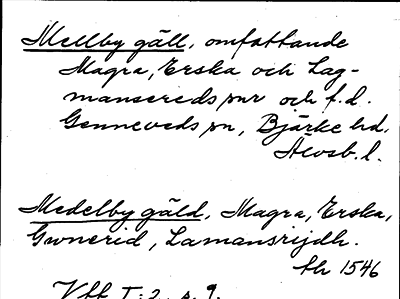 Mellby gäll, omfattande
Magra, Erska och Lag-
mansereds snr och f.d.
Genneveds sn, Bjärke hd,
Älvsb. l.
Medelby gäld, Magra, Erska,
Gwnerid, Lamansrijdh.
th 1546
Vbb I:2, s. 9.